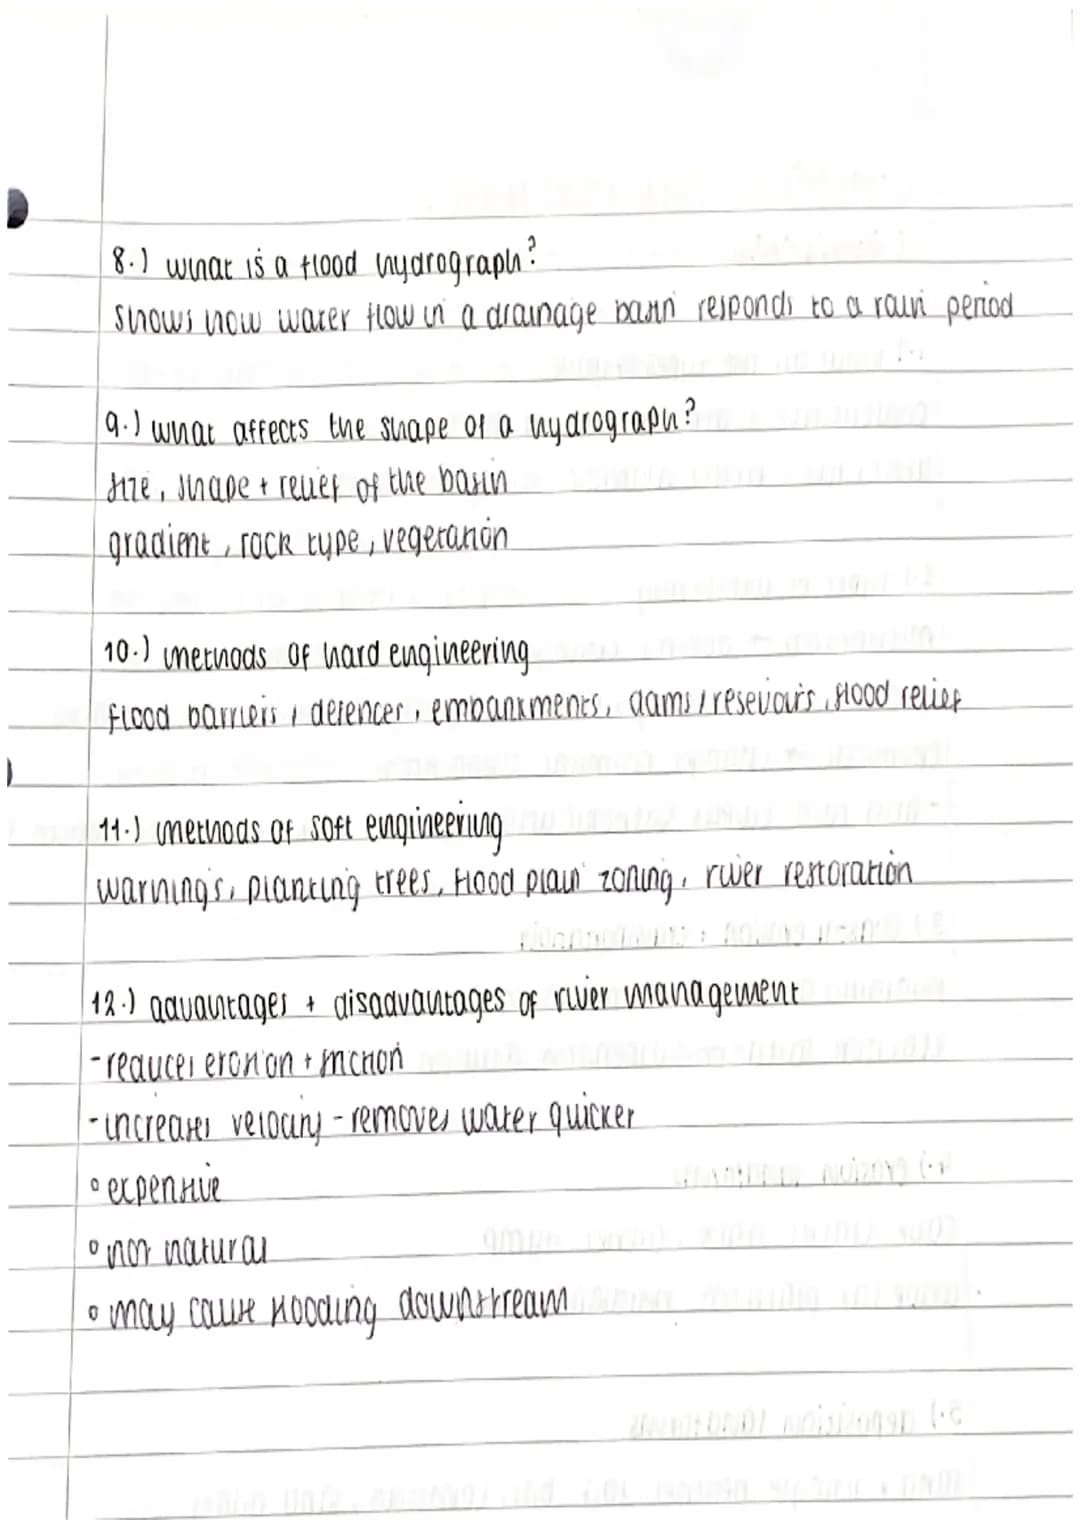 8.) what is a flood hydrograph?
shows how water flow in a drainage basin responds to a rain period
9.) what affects the shape of a hydrograph?
size, shape + relief of the basin
gradient, rock type, vegetation
10.) methods of hard engineering
flood barriers, defences, embankments, dams/resevoirs, flood relief
11.) methods of soft engineering
warning's, planting trees, flood plain zoning, river restoration
12.) advantages + disadvantages of river management
-reduces erosion + friction
-increases velocity - removes water quicker
° expensive
° not natural
° may cause flooding downstream